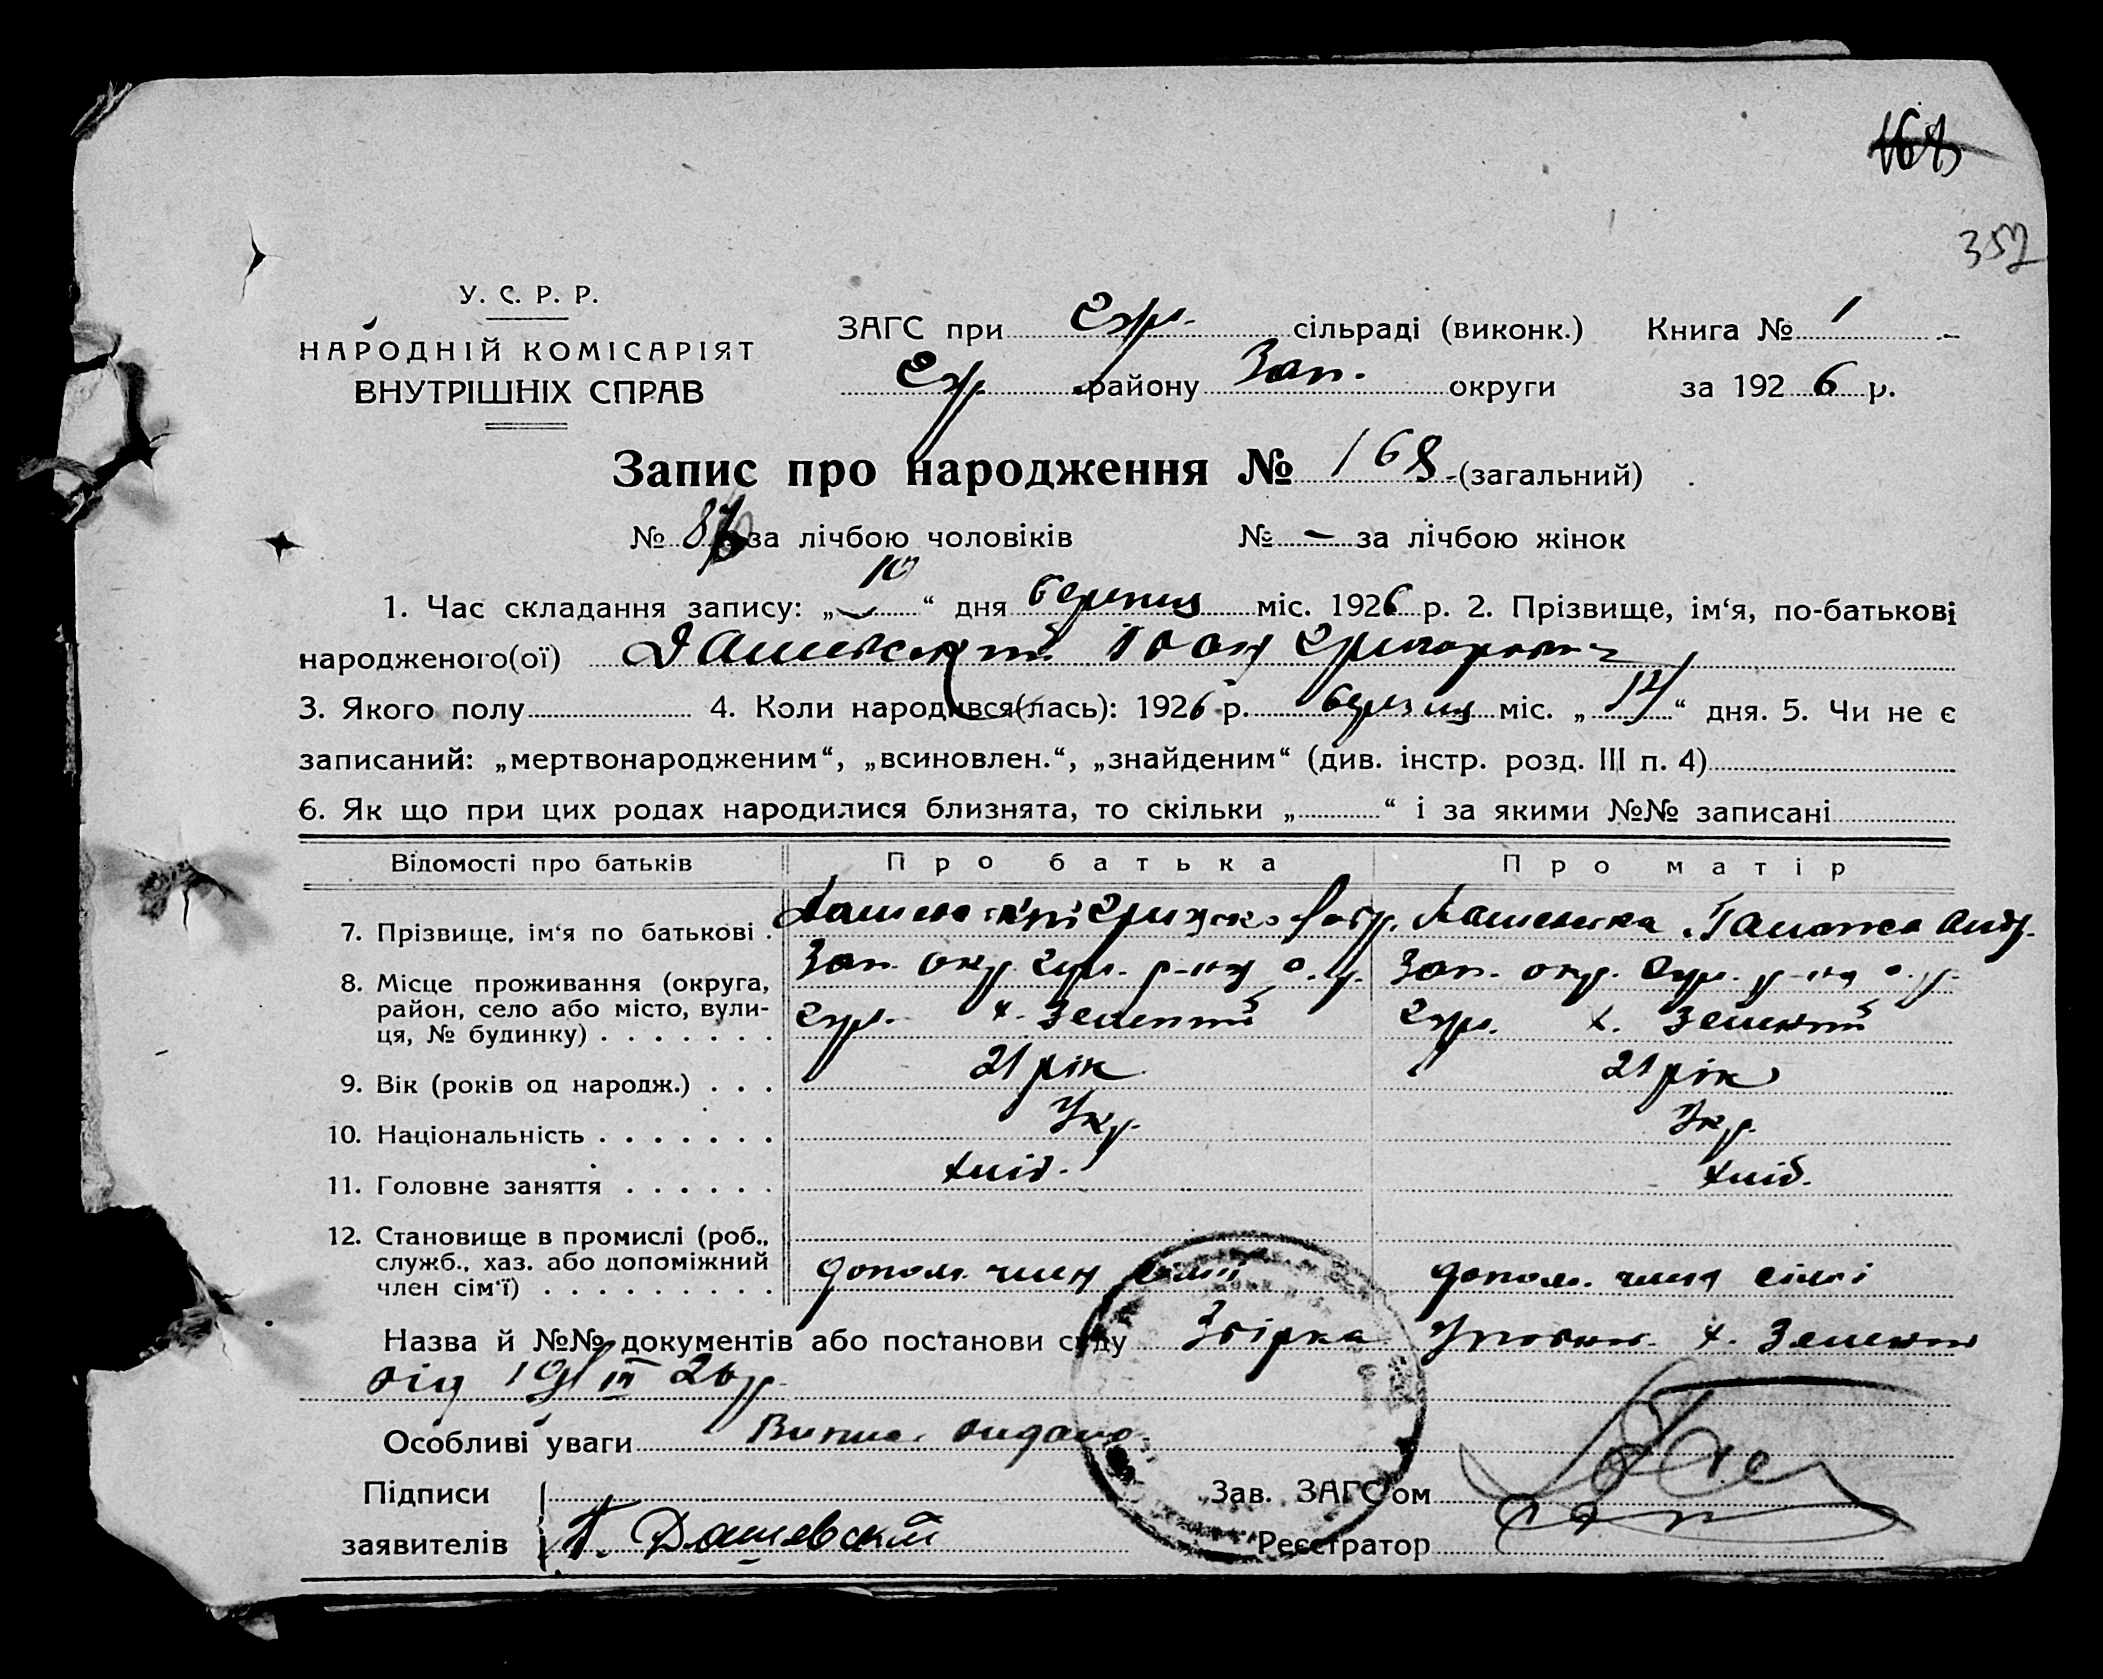 168
357
У. С. Р. Р.
НАРОДНІЙ КОМІСАРІЯТ
ВНУТРІШНІХ СПРАВ
ЗАГС при сільраді (виконк.) Книга № 1
району Зап. округи за 1926 р.
Запис про народження № 168 (загальний)
№ 87 за лічбою чоловіків № – за лічбою жінок
1. Час складання запису: „ “ дня березня міс. 1926 р. 2. Прізвище, ім‘я, по-батькові
народженого(ої) Дашевський Іван Григорович
3. Якого полу 4. Коли народився(лась): 1926 р. березня міс. „ “ дня. 5. Чи не є
записаний: „мертвонародженим“, „всиновлен.“, „знайденим“ (див. інстр. розд. III п. 4)
6. Як що при цих родах народилися близнята, то скільки „ “ і за якими №№ записані
Відомості про батьків Про батька Про матір
7. Прізвище, ім‘я по батькові . Дашевський Дашевська
8. Місце проживання (округа, Зап. окр. р-ну Зап. окр. р-ну
район, село або місто, вули- х. Зелений х. Зелений
ця, № будинку) . . . . . . .
9. Вік (років од народж.) . . . 21 рік 21 рік
10. Національність . . . . . . . Укр. Укр.
11. Головне заняття . . . . . . хліб. хліб.
12. Становище в промислі (роб.,
служб., хаз. або допоміжний допом. член сімї допом. член сімї
член сім‘ї) . . . . . . . . .
Назва й №№ документів або постанови суду х. Зелений
від 19/III 26 р.
Особливі уваги видано
Підписи Зав. ЗАГС‘ом
заявителів Дашевский Реєстратор